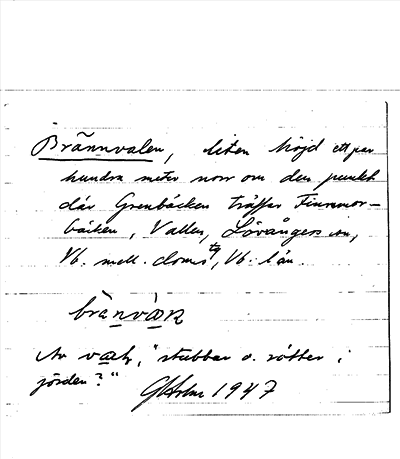 Brännvalen, liten höjd ett par
hundra meter norr om den punkt
där Grenbäcken träffar Finnmor-
bäcken, Vallen, Lövångers sn,
Vb. mell. doms tg, Vb. län.
Av "stubbar o. rötter i
jorden?" GHolm 1947